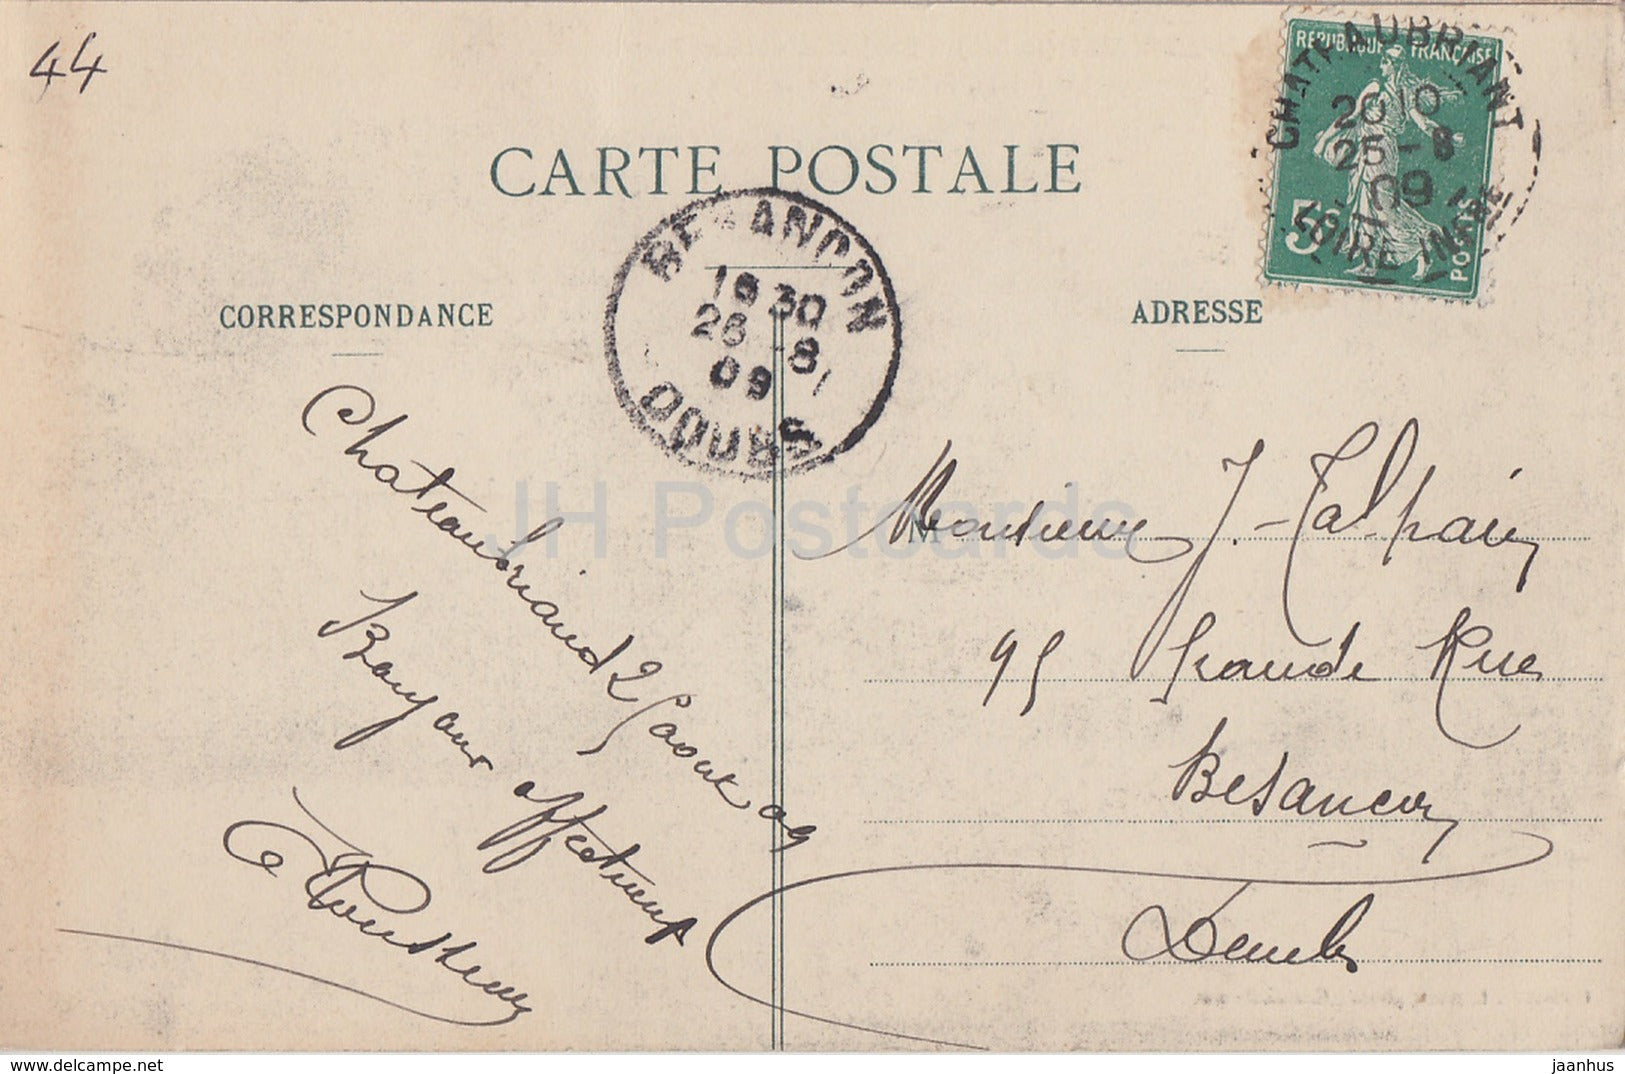 44
REPUBLIQUE FRANÇAISE
5c
POSTES
CHATEAUBRIANT
20 10
25 - 8
09
LOIRE INFRE
CARTE POSTALE
BESANCON
18 30
26 - 8
09
DOUBS
CORRESPONDANCE
ADRESSE
Chateaubriand 25 aout 09
Bonjour affectueux
Monsieur J. Talpain
95 Grande Rue
Besançon
Doubs
JH Postcards
hippostcard.com
jaanhus